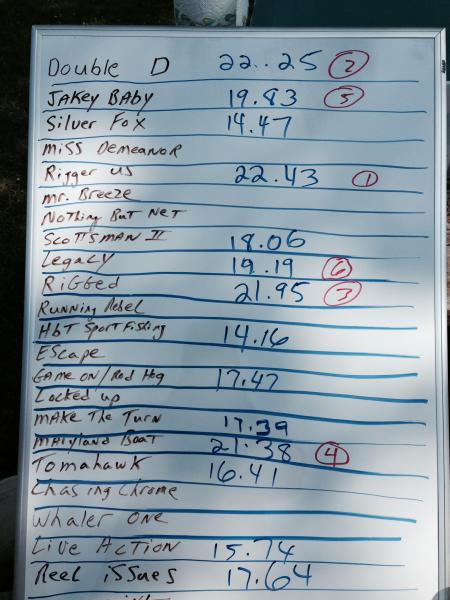 Double D 22..25 2
JAKEY BABY 19.83 5
Silver Fox 14.47
MISS DEMEANOR
Rigger US 22.43 1
mr. Breeze
NoThing BuT NET
SCOTTSMAN II 18.06
Legacy 19.19 6
RiGGed 21.95 3
Running Rebel
H&T SportFishing 14.16
EScape
GAME ON/Red Hog 17.47
Locked up
MAKE The Turn 17.39
MARYland BoaT 21.38 4
Tomahawk 16.41
Chasing Chrome
Whaler ONE
Live ACTION 15.74
Reel iSSues 17.64